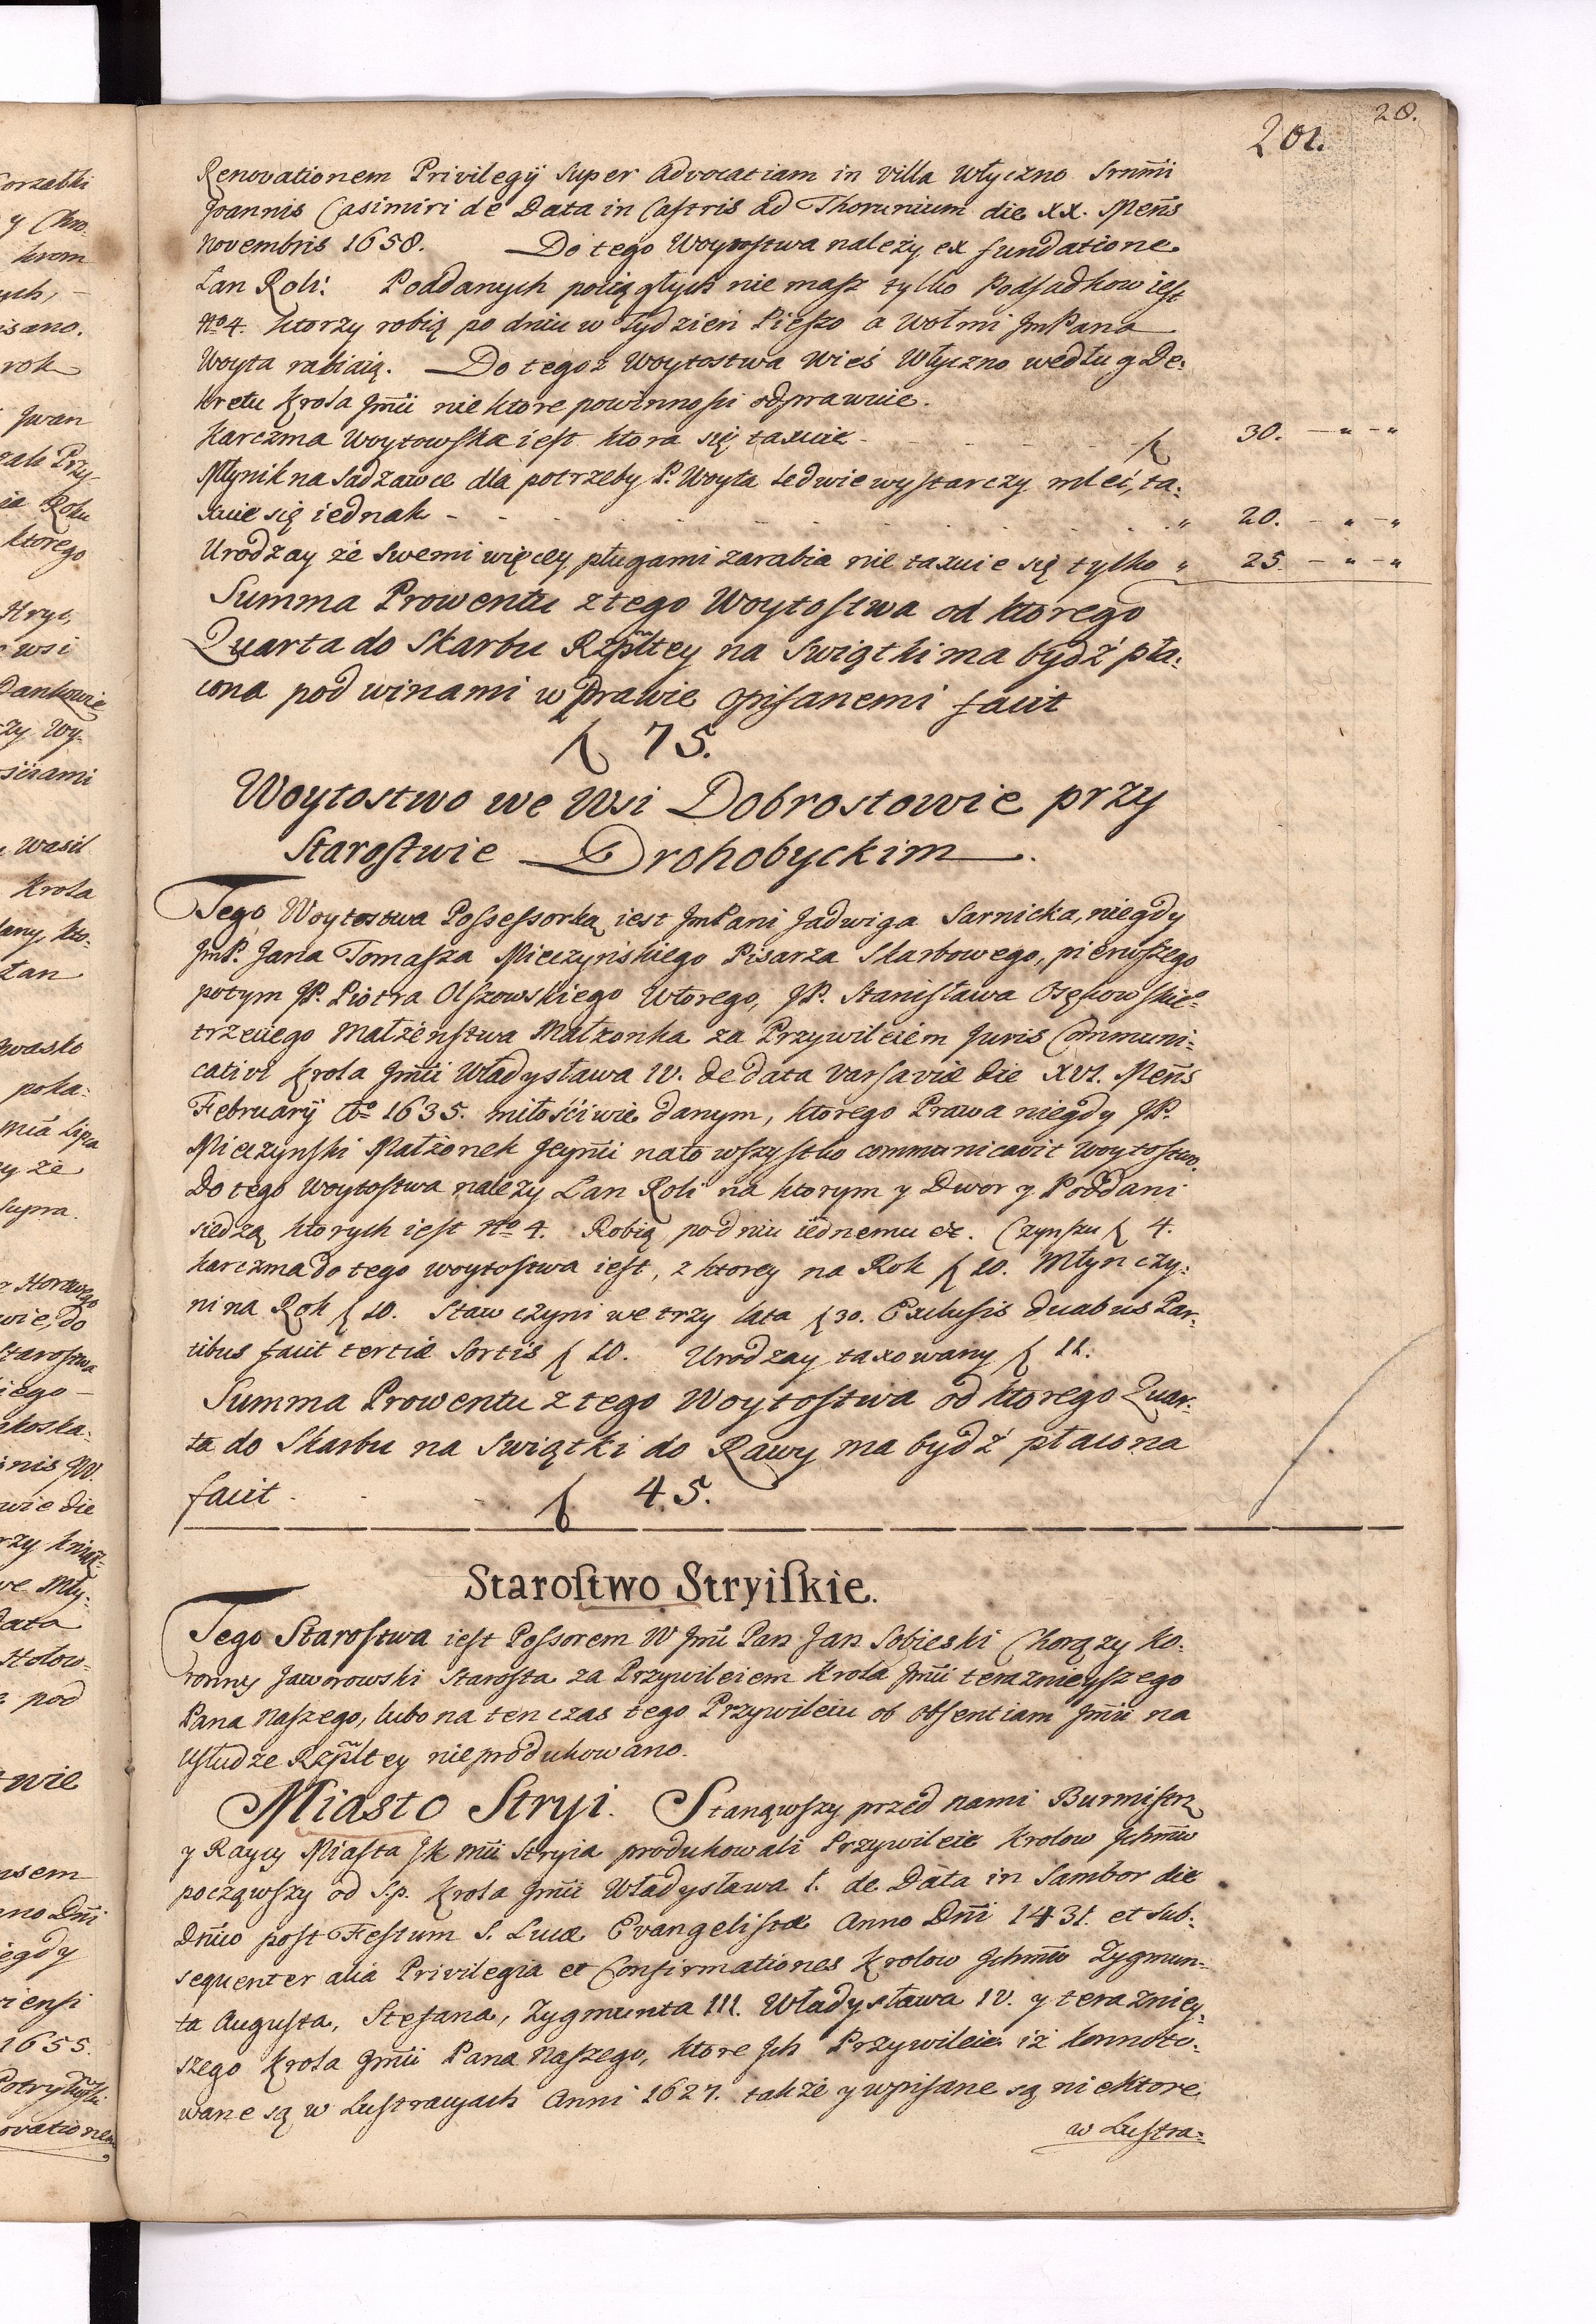 28.
201.
Renovationem Privilegÿ Super Advocatiam in Villa Włyczno Srnm̃i
Joannis Casimiri de Data in Castris ad Thorunium die XX. Meñs
Novembris 1658. Do tego Woytostwa należy ex fundatione
Łan Roli: Poddanych pociągłych nie masz tylko Podsadkow iest
No 4. ktorzy robią po dniu w Tydzień Pieszo a Wołmi JmPana
Woyta rabiaią. Do tegoż Woytostwa Wieś Włyczno według De:
kretu Krola Jm̃ci niektore powinnosci odprawuie.
Karczma Woytowska iest ktora się taxuie - - - - f 30. - " - "
Młynik na Sadzawce dla potrzeby P. Woyta ledwie wystarczy mleć, ta:
xuie się iednak - - - - " 20. - " - "
Urodzay że Swemi więcey pługami zarabia nie taxuie się tylko " 25. - " - "
Summa Prowentu z tego Woytostwa od ktorego
Quarta do Skarbu Rzpl̃tey na Swiątki ma bydź pła:
cona pod winami w Prawie opisanemi facit
f 75.
Woytostwo we Wsi Dobrostowie przy
Starostwie Drohobyckim.
Tego Woytostwa Possessorką iest JmPani Jadwiga Sarnicka, niegdy
JmP. Jana Tomasza Mieczynskiego Pisarza Skarbowego, pierwszego
potym JP. Piotra Olszowskiego Wtorego, JP. Stanisława Osękowskieo
trzeciego Małżeństwa Małzonka za Przywileiem Juris Communi:
cativi Krola Jm̃ci Władysława IV. de data Varsaviæ die XVI. Meñs
Februarÿ Ao 1635. miłościwie danym, ktorego Prawa niegdy JP.
Mieczynski Małżonek Jeym̃ci na to wszystko communicavit Woytostwo.
Do tego Woytostwa należy Łan Roli na ktorym y Dwor y Poddani
siedzą ktorych iest No 4. Robią po dniu iednemu etc. Czynszu f 4.
Karczma do tego woytostwa iest, z ktorey na Rok f 10. Młyn czy:
ni na Rok f 10. Staw czyni we trzy lata f 30. Exclusis duabus Par:
tibus facit tertiæ Sortis f 10. Urodzay taxowany f 11.
Summa Prowentu z tego Woytostwa od ktorego Quar:
ta do Skarbu na Swiątki do Rawy ma bydź płacona
facit - - f 45.
Starostwo Stryiskie.
Tego Starostwa iest Possorem W Jm̃ć Pan Jan Sobieski Chorąży Ko:
ronny Jaworowski Starosta za Przywileiem Krola Jm̃ci teraznieyszego
Pana Naszego, lubo na ten czas tego Przywileiu ob absentiam Jm̃ci na
Usłudze Rzpl̃tey nie produkowano.
Miasto Stryi. Stanąwszy przed nami Burmistrz
y Raycy Miasta JK mći Stryia produkowali Przywileie Krolow Jchm̃w
począwszy od S.p. Krola Jm̃ci Władysława I. de Data in Sambor die
Dñico post Festum S. Lucæ Evangelistæ Anno Dñi 1431. et sub:
sequenter alia Privilegia et Confirmationes Krolow Jchm̃w Zygmun:
ta Augusta, Stefana, Zygmunta III. Władysława IV. y teraźniey:
szego Krola Jm̃ci Pana Naszego, ktore Jch Przywileie iż konnoto:
wane są w Lustracyach Anni 1627. także y wpisane są niektore
w Lustra: